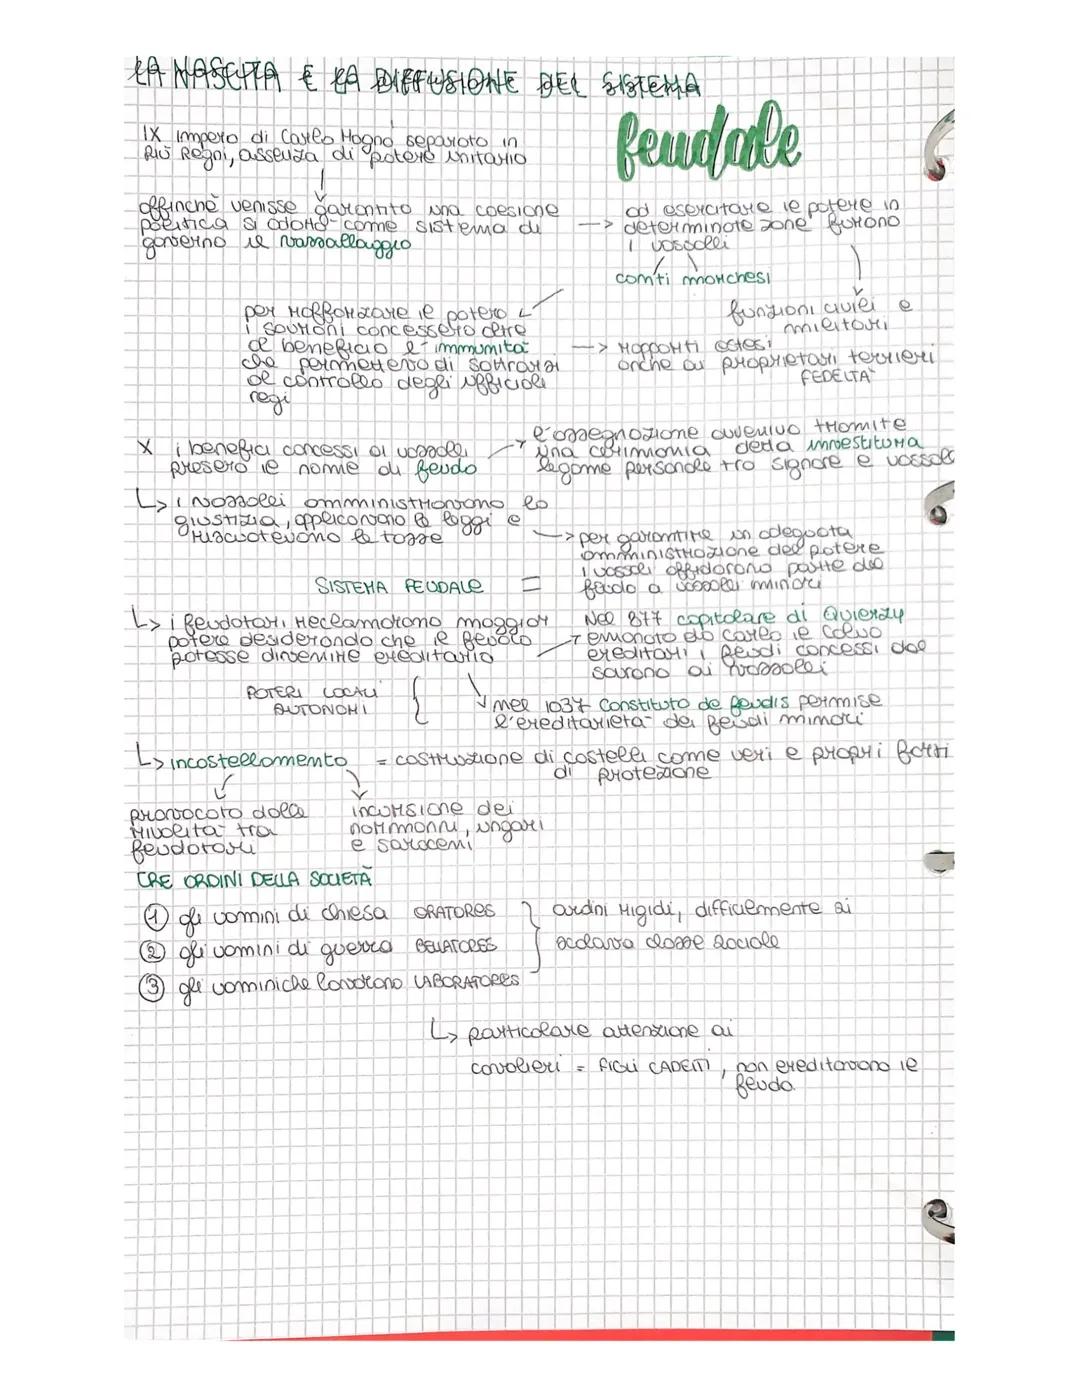 LA NASCITA E LA DIFFUSIONE DEL SISTEMA
feudale
IX impero di Carlo Magno separato in
più Regni, assenza di potere unitario
affinchè venisse garantito una coesione
politica si adottò come sistema di
governo il vassallaggio
-> ad esercitare il potere in
determinate zone furono
i vassalli
conti marchesi
funzioni civili e
militari
per rafforzare il potere
i sovrani concessero oltre
al beneficio l'immunità
che permetteva di sottrarsi
al controllo degli ufficiali
regi
-> rapporti estesi
anche ai proprietari terrieri
FEDELTA'
X i benefici concessi ai vassalli
presero il nome di feudo
l'assegnazione avveniva tramite
una cerimonia detta investitura
legame personale tra signore e vassall
↳ i vassalli amministravano la
giustizia, applicavano le leggi e
riscuotevano le tasse
-> per garantire un adeguata
amministrazione del potere
i vassalli affidarono parte del
feudo a vassalli minori
SISTEMA FEUDALE =
↳ i feudatari reclamarono maggior
potere desiderando che il feudo
potesse divenire ereditario
Nel 877 capitolare di Quierzy
emanato da Carlo il Calvo
ereditari i feudi concessi dal
sovrano ai vassalli
POTERI LOCALI
AUTONOMI
nel 1037 Constituto de feudis permise
l'ereditarietà dei feudi minori
↳ incastellamento = costruzione di castelli come veri e propri forti
di protezione
provocato dalle
rivolità tra
feudatari
incursione dei
normanni, ungari
e saraceni
TRE ORDINI DELLA SOCIETÀ
1 gli uomini di chiesa ORATORES
2 gli uomini di guerra BELLATORES
3 gli uomini che lavorano LABORATORES
ordini rigidi, difficilmente si
scalava classe sociale
↳ particolare attenzione ai
cavalieri = FIGLI CADETTI, non ereditavano il
feudo.